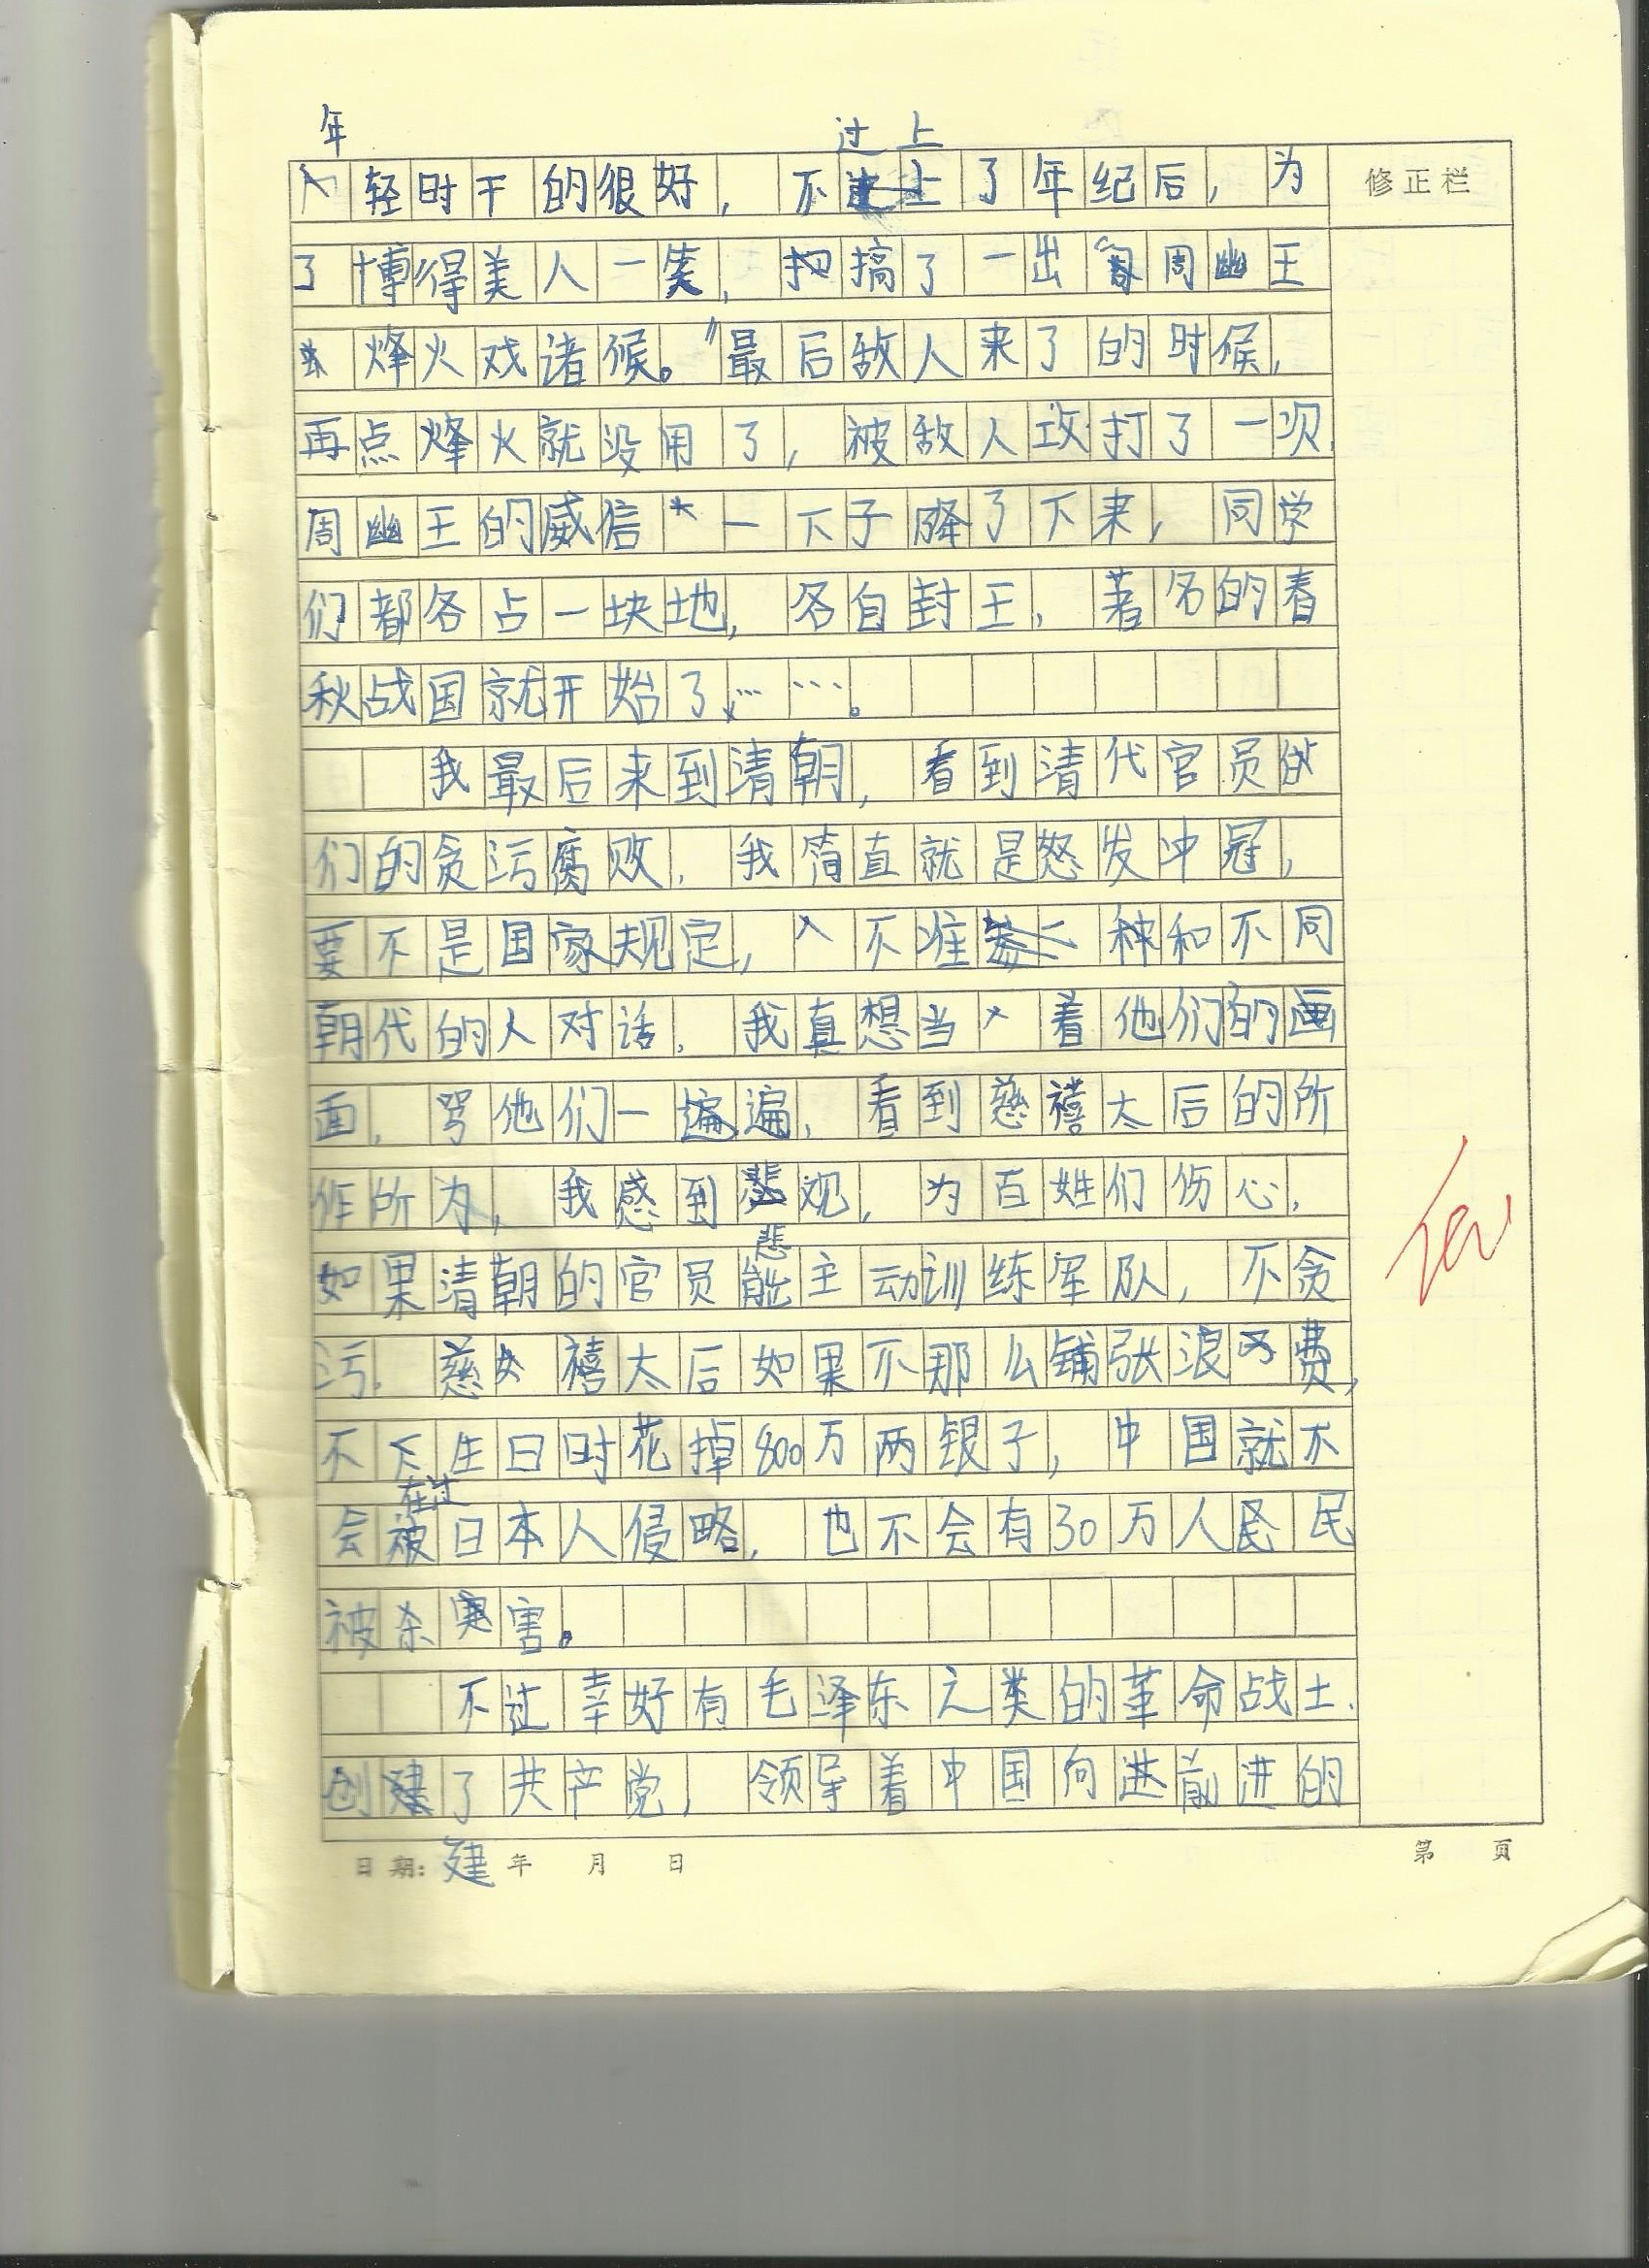 年 过上
轻时干的很好，不了年纪后，为 修正栏
了博得美人一笑，搞了一出“周幽王
烽火戏诸候。”最后敌人来了的时候，
再点烽火就没用了，被敌人攻打了一次，
周幽王的威信一下子降了下来，同学
们都各占一块地，各自封王，著名的春
秋战国就开始了……。
我最后来到清朝，看到清代官员
们的贪污腐败，我简直就是怒发冲冠，
要不是国家规定，不准和不同
朝代的人对话，我真想当着他们的画
面，骂他们一遍，看到慈禧太后的所
作所为，我感到观，为百姓们伤心，
悲
如果清朝的官员能主动训练军队，不贪
污，慈禧太后如果不那么铺张浪费，
不生日时花掉800万两银子，中国就不
在过
会被日本人侵略，也不会有30万人民
被杀害。
不过幸好有毛泽东之类的革命战士，
创了共产党，领导着中国向进前进的
建
日期： 年 月 日 第 页